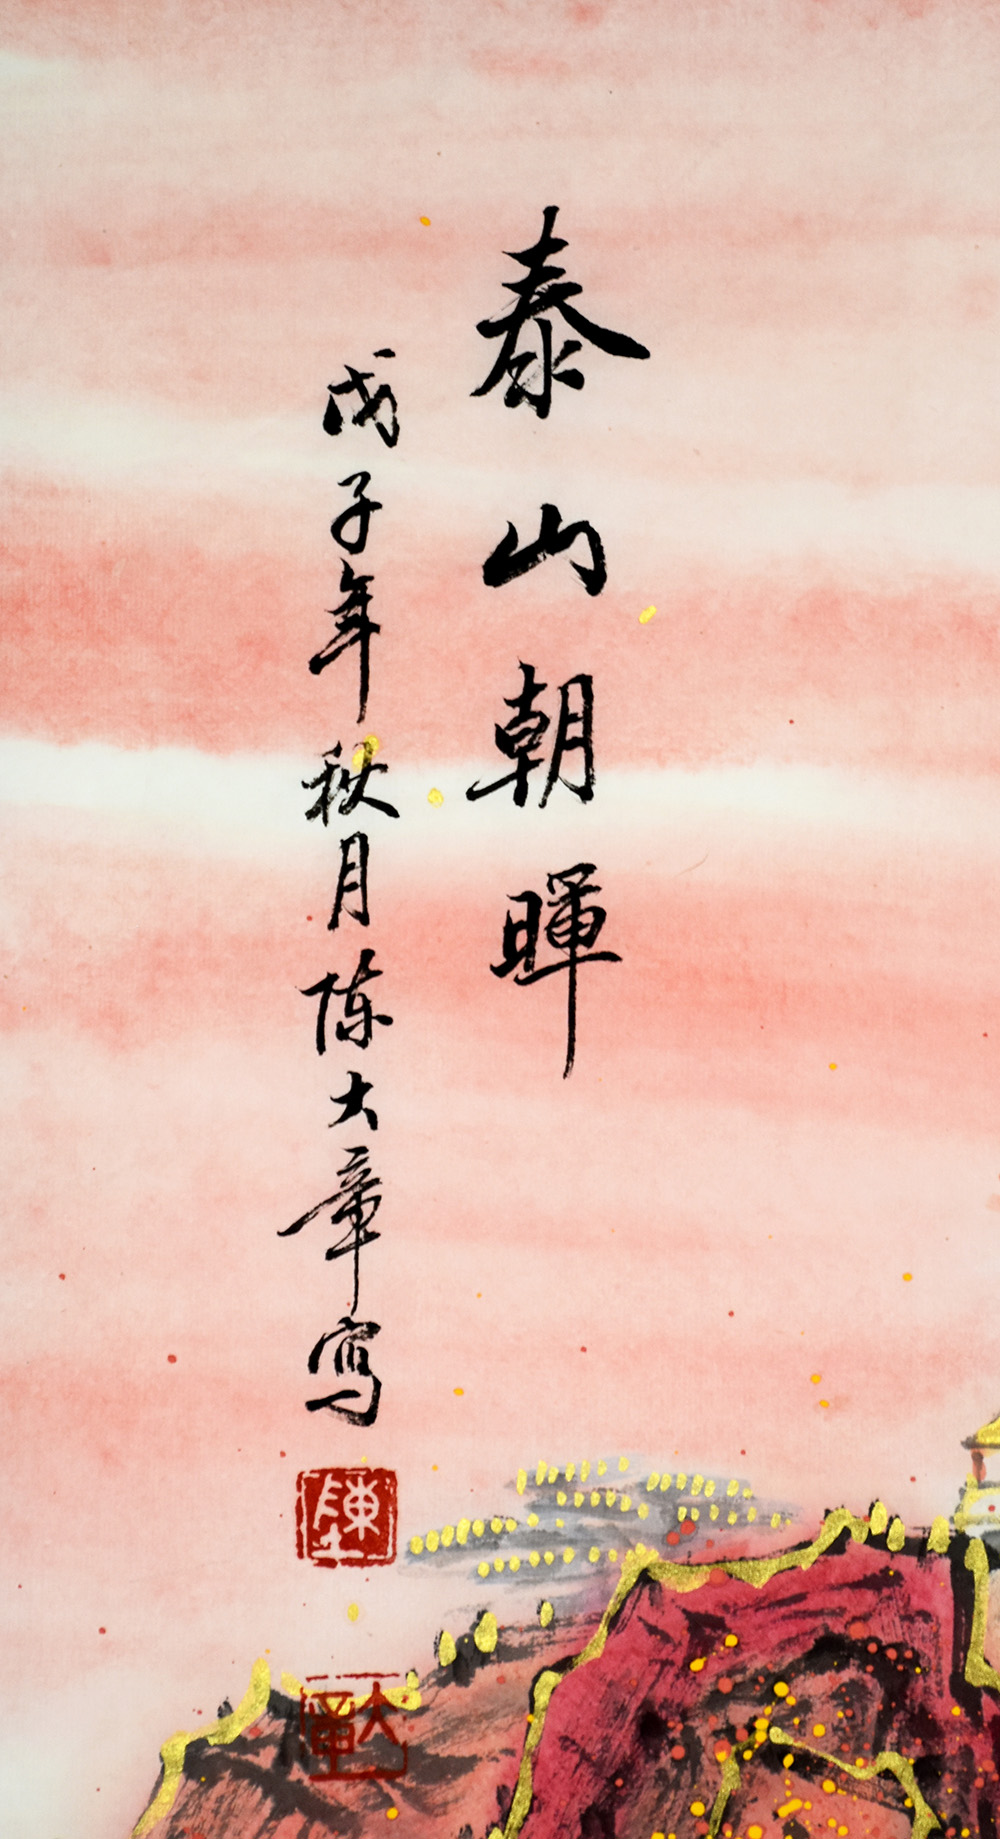 泰山朝暉
戊子年秋月陈大章写
陳
大章